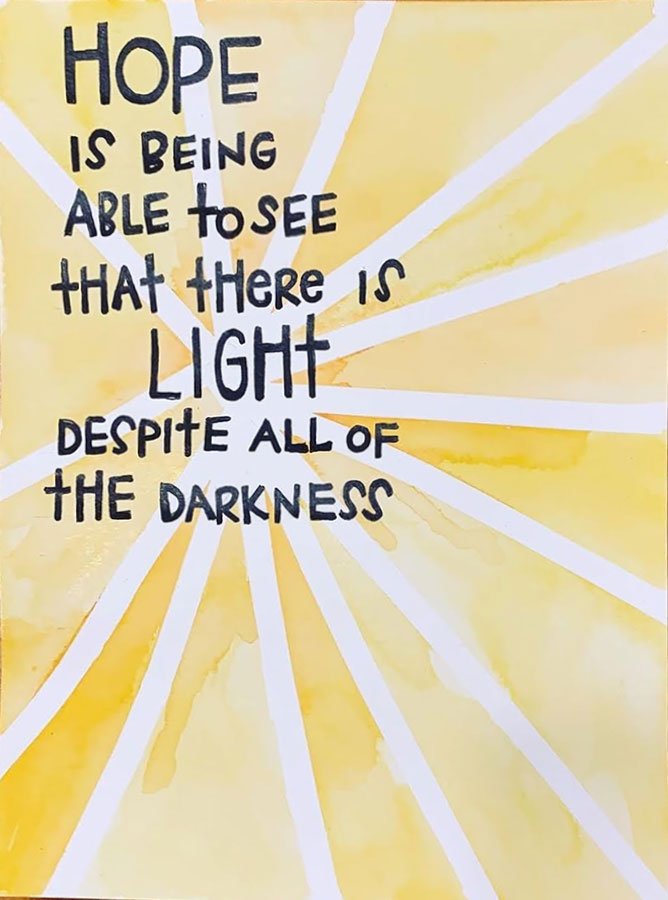 HOPE
IS BEING
ABLE to SEE
tHAt tHeRe IS
LIGHt
DESPItE ALL OF
tHE DARKNESS